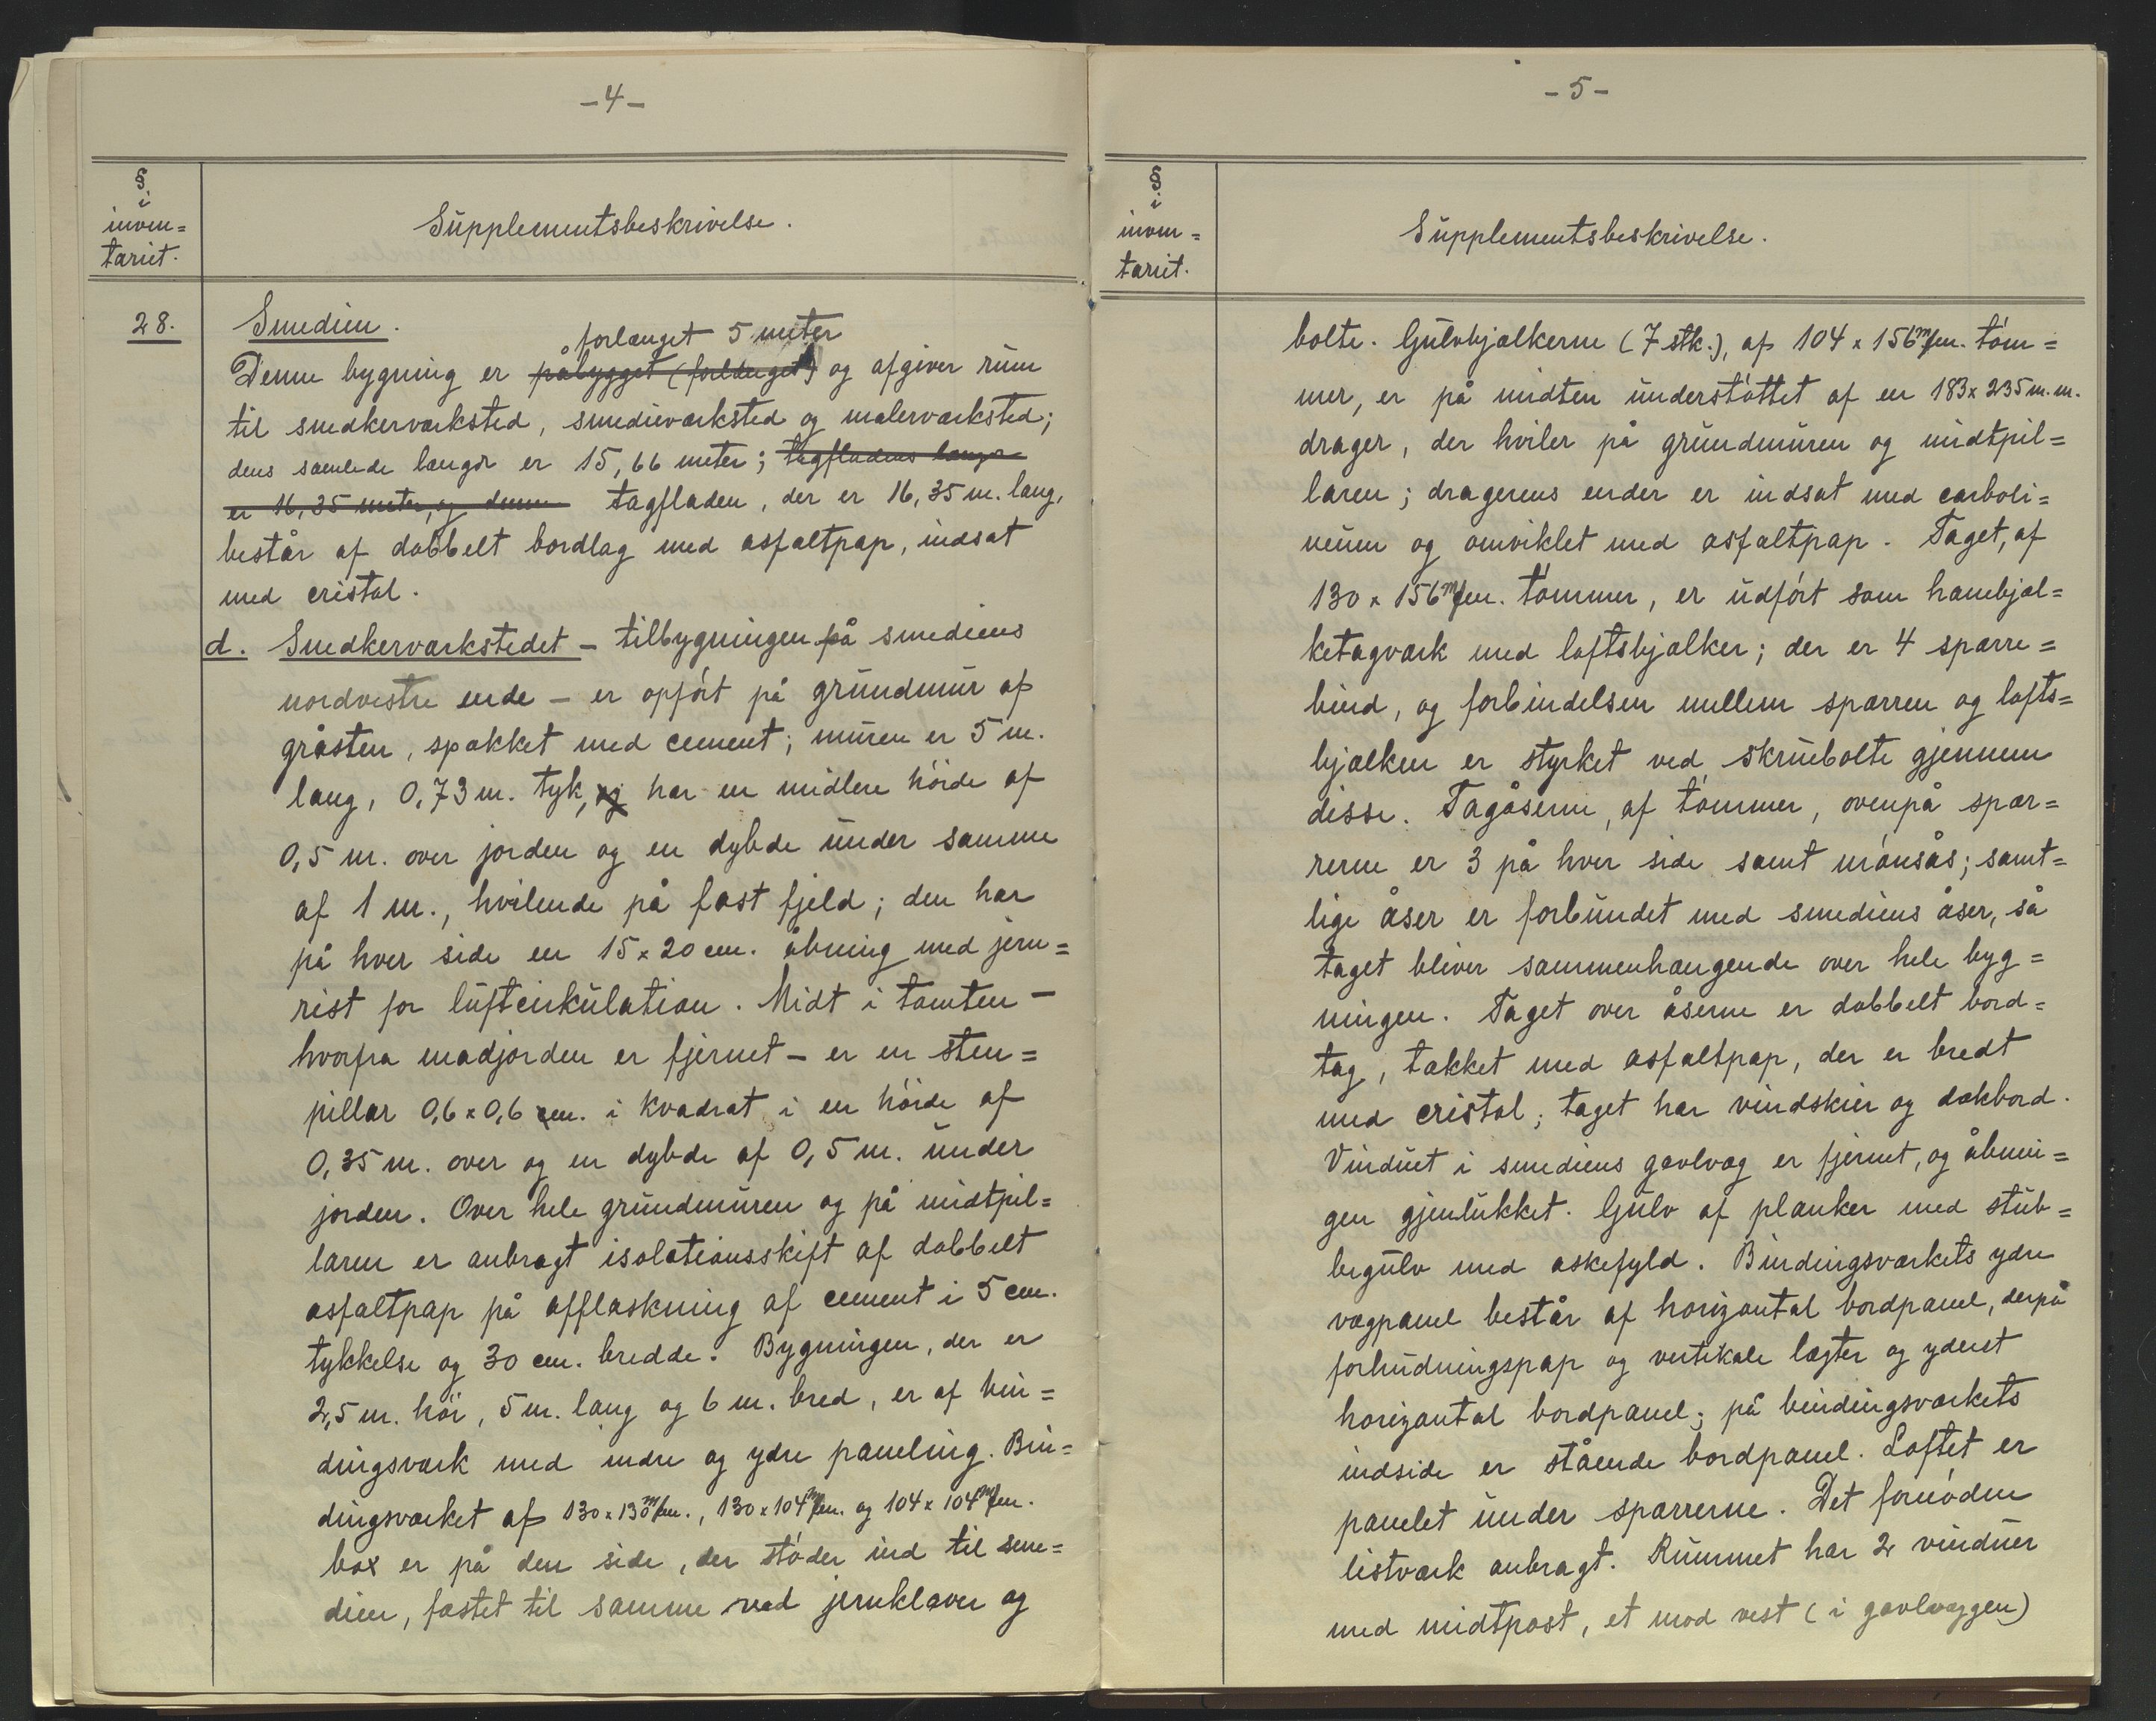 -4-
§
i
inven=
tariet.
Supplementsbeskrivelse.
28.
Smedien.
forlænget 5 meter
Denne bygning er påbygget (forlænget) og afgiver rum
til snedkerværksted, smedieværksted og malerværksted;
dens samlede længde er 15,66 meter; tagfladens længde
er 16,35 meter, og denne tagfladen, der er 16,35 m. lang,
består af dobbelt bordlag med asfaltpap, indsat
med cristal.
d. Snedkerværkstedet - tilbygningen på smediens
nordvestre ende - er opført på grundmur af
gråsten, spækket med cement; muren er 5 m.
lang, 0,73 m. tyk, og har en midlere höide af
0,5 m. over jorden og en dybde under samme
af 1 m., hvilende på fast fjeld; den har
på hver side en 15 x 20 cm. åbning med jern=
rist for luftcirkulation. Midt i tomten -
hvorfra madjorden er fjernet - er en sten=
pillar 0,6 x 0,6 m. i kvadrat i en höide af
0,35 m. over og en dybde af 0,5 m. under
jorden. Over hele grundmuren og på midtpil=
laren er anbragt isolationsskift af dobbelt
asfaltpap på afflaskning af cement i 5 cm.
tykkelse og 30 cm. bredde. Bygningen, der er
2,5 m. höi, 5 m. lang og 6 m. bred, er af bin=
dingsværk med indre og ydre paneling. Bin=
dingsværket af 130 x 130 m/m., 130 x 104 m/m. og 104 x 104 m/m.
box er på den side, der støder ind til sme=
dien, fæstet til samme ved jernklaver og
-5-
§
i
inven=
tariet.
Supplementsbeskrivelse.
bolte. Gulvbjælkerne (7 stk.), af 104 x 156 m/m. töm=
mer, er på midten understöttet af en 183 x 235 m.m.
drager, der hviler på grundmuren og midtpil=
laren; dragerens ender er indsat med carboli=
neum og omviklet med asfaltpap. Taget, af
130 x 156 m/m. tömmer, er udfört som hanebjæl=
ketagværk med loftsbjælker; der er 4 sparre=
bind, og forbindelsen mellem sparren og lofts=
bjælken er styrket ved skruebolte gjennem
disse. Tagåserne, af tömmer, ovenpå spar=
rerne er 3 på hver side samt mönsås; samt=
lige åser er forbundet med smediens åser, så
taget bliver sammenhængende over hele byg=
ningen. Taget over åserne er dobbelt bord=
tag, tækket med asfaltpap, der er bredt
med cristal; taget har vindskier og dækbord.
Vinduet i smediens gavlvæg er fjernet, og åbnin=
gen gjenlukket. Gulv af planker med stub=
begulv med askefyld. Bindingsværkets ydre
vægpanel består af horizontal bordpanel, derpå
forhudningspap og vertikale lægter og yderst
horizontal bordpanel; på bindingsværkets
indside er stående bordpanel. Loftet er
panelet under sparrerne. Det fornödne
listværk anbragt. Rummet har 2 vinduer
med midtpost, et mod vest (i gavlvæggen)